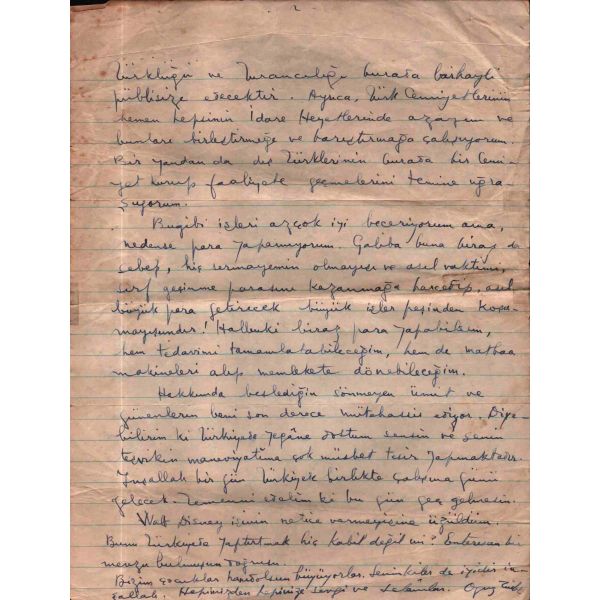 2
Türklüğü ve Turancılığı burada birhayli
publisize edecektir. Ayrıca, Türk Cemiyetlerinin
hemen hepsinin İdare Heyetlerinde azayım ve
bunları birleştirmeğe ve barıştırmağa çalışıyorum.
Bir yandan da dış Türklerinin burada bir Cemi-
yet kurup faaliyete geçmelerini temine uğra-
şıyorum.
Bugibi işleri azçok iyi beceriyorum ama,
nedense para yapamıyorum. Galiba buna biraz da
sebep, hiç sermayemin olmayışı ve asıl vaktimi,
sırf geçinme parasını kazanmağa harcedip, asıl
büyük para getirecek büyük işler peşinden koşa-
mayışımdır! Halbuki biraz para yapabilsem,
hem tedavimi tamamlatabileceğim, hem de matbaa
makineleri alıp memlekete dönebileceğim.
Hakkımda beslediğin sönmeyen ümit ve
güvenlerin beni son derece mütehassis ediyor. Diye-
bilirim ki Türkiyede yegâne dostum sensin ve senin
teşvikin maneviyatıma çok müsbet tesir yapmaktadır.
İnşallah bir gün Türkiyede birlikte çalışma günü
gelecek. Temenni edelim ki bu gün geç gelmesin.
Walt Disney işinin netice vermeyişine üzüldüm.
Bunu Türkiyede yaptırtmak hiç kabil değil mi? Enteresan bir
mevzu bulmuşsun doğrusu.
Bizim çocuklar hamdolsun büyüyorlar. Seninkiler de iyidir in-
şallah. Hepimizden hepinize sevgi ve selâmlar.